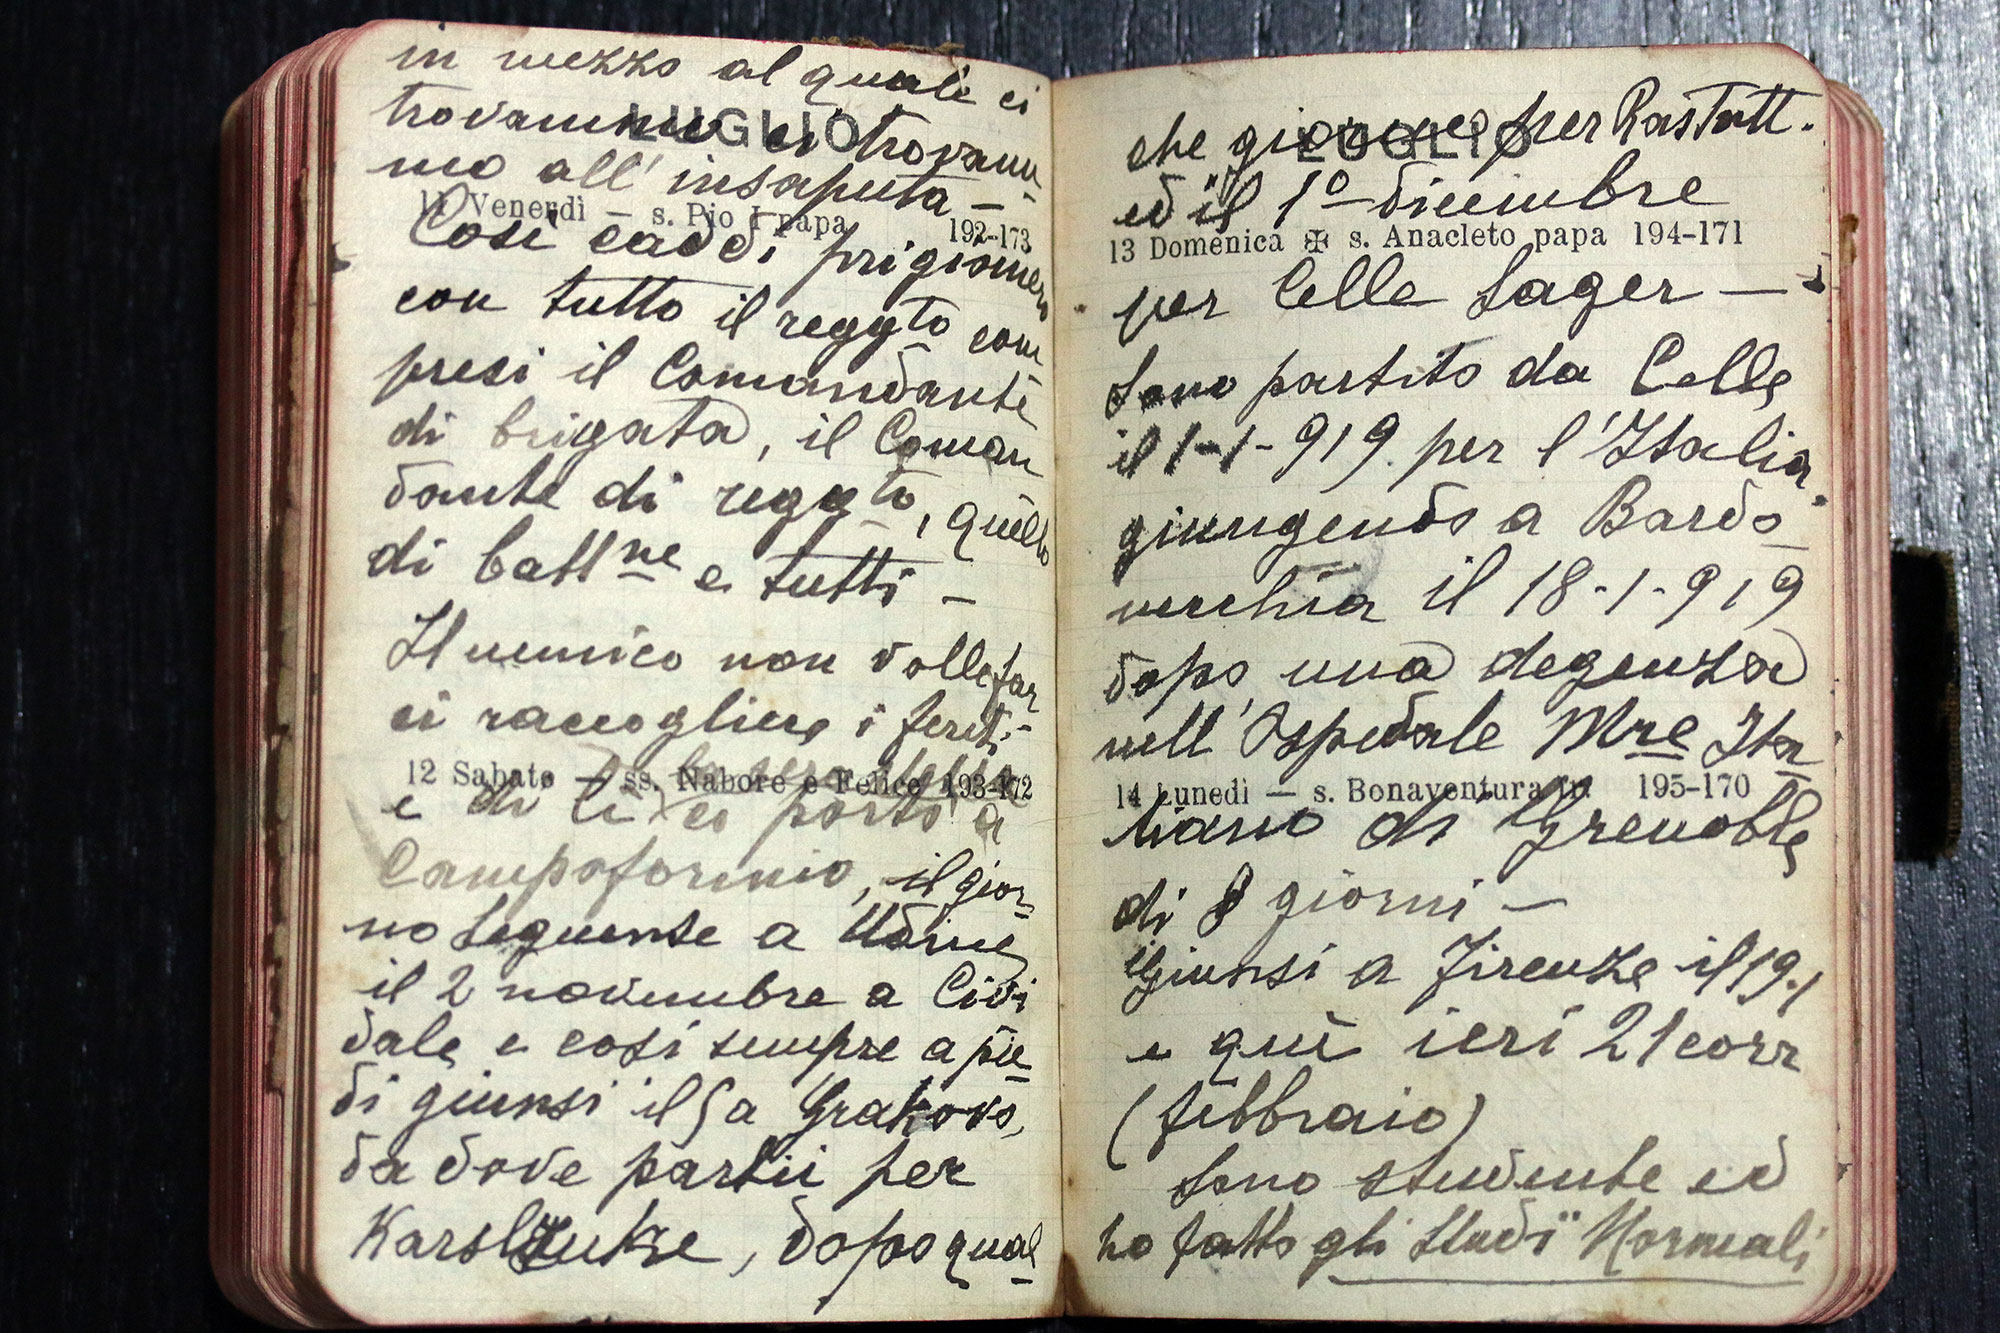 in mezzo al quale ci
LUGLIO
trovammo ci trovam
mo all' insaputa —
11 Venerdì — s. Pio I papa 192-173
Così caddi prigioniero
con tutto il reggto com
presi il Comandante
di brigata, il Coman
dante di reggto, quello
di battne e tutti —
Il nemico non volle far
ci raccogliere i feriti -
12 Sabato — ss. Nabore e Felice 193-172
e di lì ci portò a
Campoformio, il gior-
no seguente a Udine
il 2 novembre a Civi
dale e così sempre a pie-
di giunsi il 5 a Grahovo,
da dove partii per
, dopo qual-
LUGLIO
che giorno per Rastatt.
ed il 1° dicembre
13 Domenica ✠ s. Anacleto papa 194-171
per Celle Lager —
Sono partito da Celle
il 1-1-919 per l'Italia,
giungendo a Bardo-
necchia il 18-1-919
dopo una degenza
nell' Ospedale Mre Ita-
14 Lunedì — s. Bonaventura 195-170
liano di Grenoble
di 8 giorni —
Giunsi a Firenze il 19.1
e quì ieri 21 corr
(febbraio)
Sono studente ed
ho fatto gli Studi "Normali